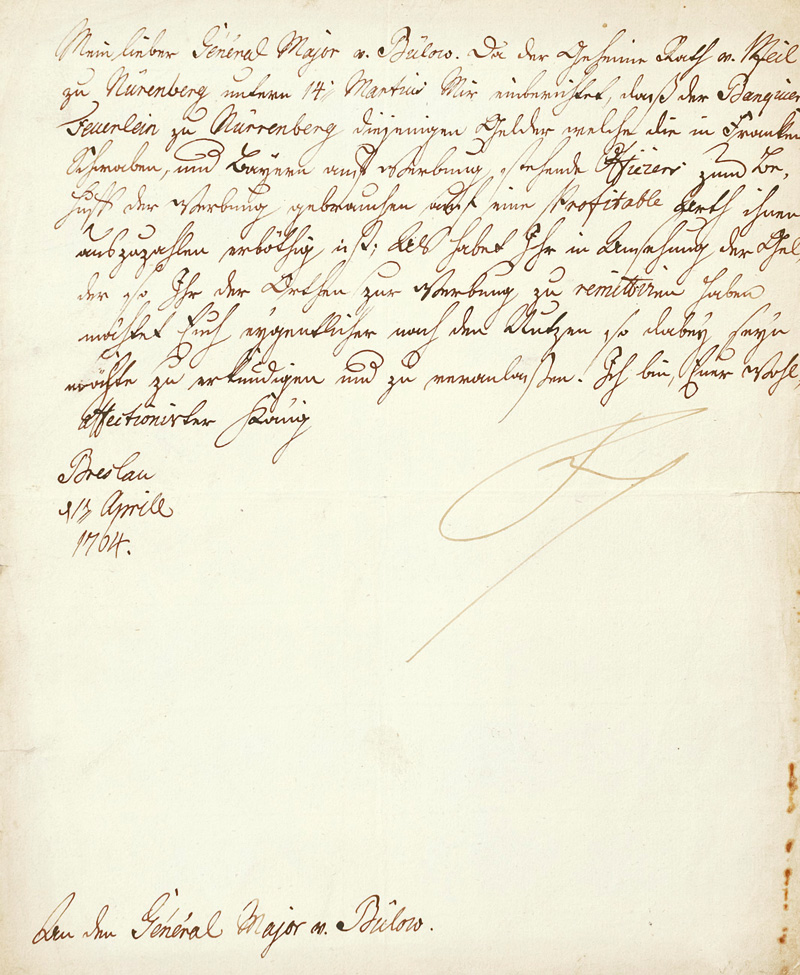 Mein lieber Général Major v. Bülow. Da der Geheime Rath v. Pfeil
zu Nürenberg untern 14 Martius Mir einberichtet, daß der Banquier
Feuerlein zu Nürrenberg diejenigen Gelder welche die in Francken
Schwaben, und Bayern auf Werbung stehende Officiers zum Be,
huff der Werbung gebrauchen auf eine Profitable Arth ihnen
auszuzahlen erböthig ist; Als habet Ihr in Ansehung der Gel,
der so Ihr der Orthen zur Werbung zu remittiren haben
möchtet Euch eygentlicher nach den Nutzen so dabey seyn
möchte zu erkundigen und zu veranlaßen. Ich bin, Euer Wohl,
affectionirter König
Breslau
d 13 Aprill
1764.
An den Général Major v. Bülow.